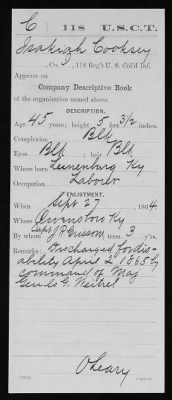 C | 118 | U.S.C.T.
Isakiah Cooksey
, Co. , 118 Reg't U. S. Col'd Inf.
Appears on
Company Descriptive Book
of the organization named above.
DESCRIPTION.
Age 45 years; height 5 feet 3 1/2 inches.
Complexion Blk
Eyes Blk ; hair Blk
Where born Lunenburg Ky
Occupation Laborer
ENLISTMENT.
When Sept 27 , 1864
Where Owensboro Ky
By whom Capt J R Grissom ; term 3 y'rs.
Remarks: Discharged for dis-
ability April 2 1865 by
command of Maj
Genl G. Weitzel
O'Leary